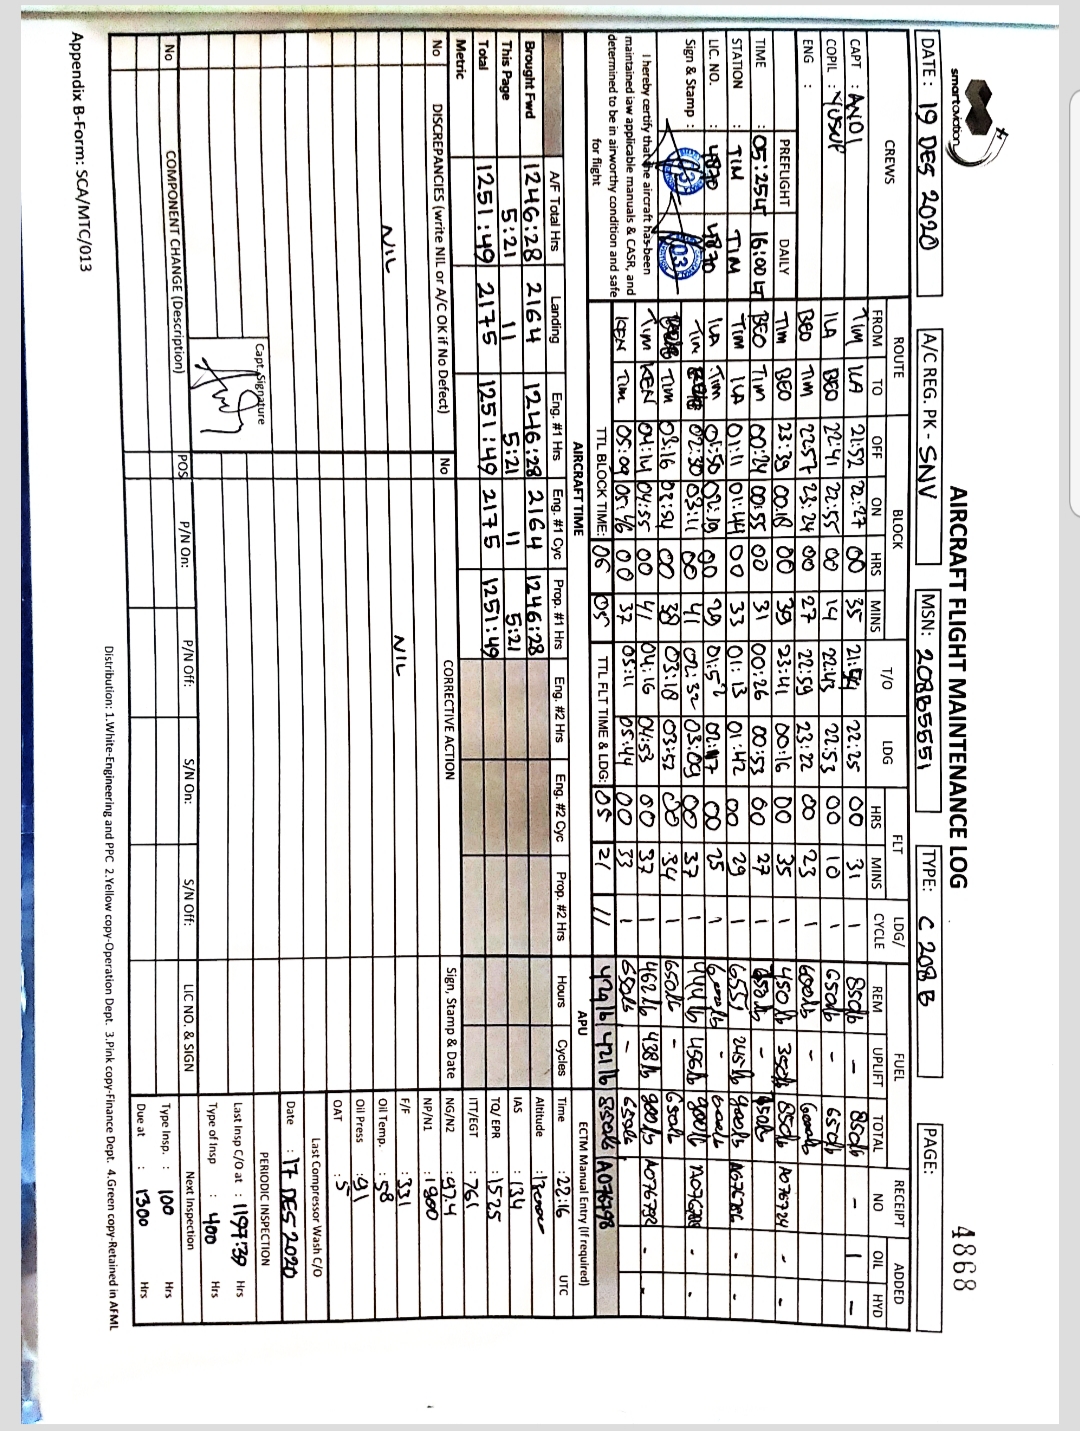 smartaviation
AIRCRAFT FLIGHT MAINTENANCE LOG
4868
DATE : 19 DES 2020
A/C REG. PK - SNV
MSN: 208B5551
TYPE: C 208 B
PAGE:
CREWS ROUTE BLOCK FLT LDG/ FUEL RECEIPT ADDED
FROM TO OFF ON HRS MINS T/O LDG HRS MINS CYCLE REM UPLIFT TOTAL NO OIL HYD
CAPT : ANDI
COPIL : YUSUP
ENG :
PREFLIGHT DAILY
TIME : 05:25 LT 16:00 LT
STATION : TIM TIM
LIC. NO. : 4870 4870
Sign & Stamp :
I hereby certify that the aircraft has been
maintained iaw applicable manuals & CASR, and
determined to be in airworthy condition and safe
for flight
TIM ILA 21:52 22:27 00 35 21:54 22:25 00 31 1 850lb - 850lb - 1 -
ILA BEO 22:41 22:55 00 14 22:43 22:53 00 10 1 650lb - 650lb
BEO TIM 22:57 23:24 00 27 22:59 23:22 00 23 1 600lb - 600lb
TIM BEO 23:39 00:18 00 39 23:41 00:16 00 35 1 450 lb 850lb A076724 - -
BEO TIM 00:24 00:55 00 31 00:26 00:53 00 27 1 -
TIM ILA 01:11 01:44 00 33 01:13 01:42 00 29 1 655 245 lb 900lb - -
ILA TIM 01:50 02:19 00 29 01:52 02:17 00 25 1 -
TIM 02:30 03:11 00 41 02:32 03:09 00 37 1 456lb 900lb - -
TIM 03:16 03:54 00 38 03:18 03:52 00 34 1 650lb - 650lb
TIM KEN 04:14 04:55 00 41 04:16 04:53 00 37 1 462lb 438lb 900lb A076792 - -
KEN TIM 05:09 05:46 00 37 05:11 05:44 00 33 1 650lb - 650lb
TTL BLOCK TIME: 06 05 TTL FLT TIME & LDG: 05 21 11 429lb 421lb 850lb A076798
AIRCRAFT TIME APU ECTM Manual Entry (If required)
A/F Total Hrs Landing Eng. #1 Hrs Eng. #1 Cyc Prop. #1 Hrs Eng. #2 Hrs Eng. #2 Cyc Prop. #2 Hrs Hours Cycles
Brought Fwd 1246:28 2164 1246:28 2164 1246:28
This Page 5:21 11 5:21 11 5:21
Total 1251:49 2175 1251:49 2175 1251:49
Metric
Time : 22:16 UTC
Altitude :
IAS : 134
TQ/ EPR : 1525
ITT/EGT : 761
NG/N2 : 97.4
NP/N1 : 1800
F/F : 331
Oil Temp. : 58
Oil Press : 91
OAT : 5
No DISCREPANCIES (write NIL or A/C OK if No Defect) No CORRECTIVE ACTION Sign, Stamp & Date
NIL
NIL
Capt. Signature
Last Compressor Wash C/O
Date : 17 DES 2020
PERIODIC INSPECTION
Last Insp C/o at : 1197:39 Hrs
Type of Insp : 400 Hrs
Next Inspection
Type Insp. : 100 Hrs
Due at : 1300 Hrs
No COMPONENT CHANGE (Description) POS P/N On: P/N Off: S/N On: S/N Off: LIC NO. & SIGN
Distribution: 1.White-Engineering and PPC 2.Yellow copy-Operation Dept. 3.Pink copy-Finance Dept. 4.Green copy-Retained in AFML
Appendix B-Form: SCA/MTC/013